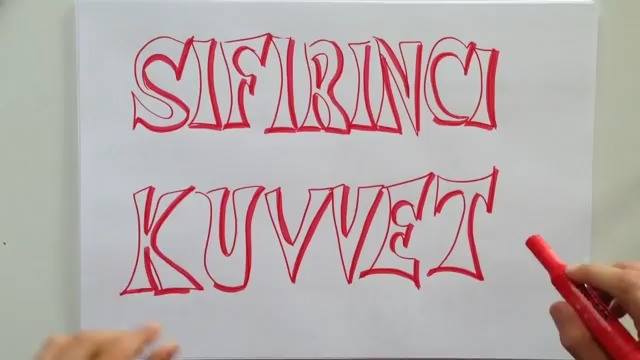 SIFIRINCI
KUVVET